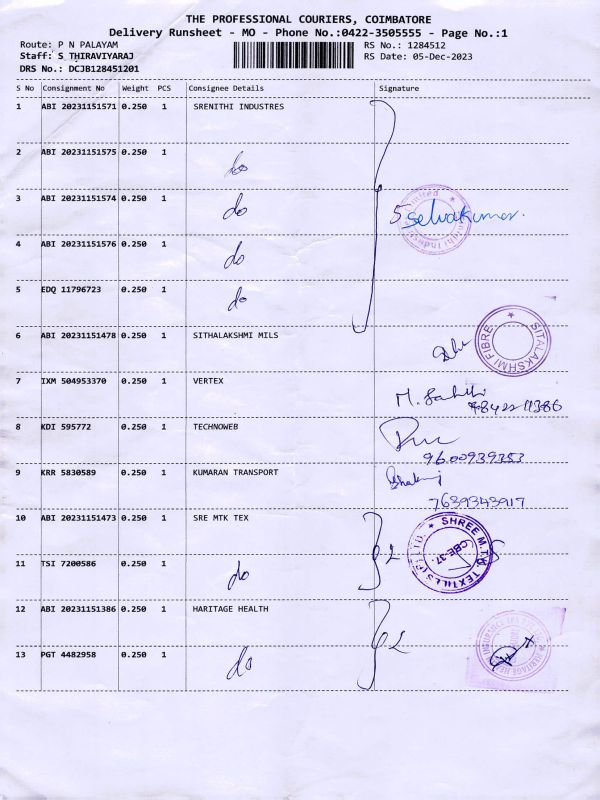 THE PROFESSIONAL COURIERS, COIMBATORE
Delivery Runsheet - MO - Phone No.:0422-3505555 - Page No.:1
Route: P N PALAYAM RS No.: 1284512
Staff: S THIRAVIYARAJ RS Date: 05-Dec-2023
DRS No.: DCJB128451201
S No Consignment No Weight PCS Consignee Details Signature
1 ABI 20231151571 0.250 1 SRENITHI INDUSTRES
2 ABI 20231151575 0.250 1 do
3 ABI 20231151574 0.250 1 do
5 Selvakumar.
4 ABI 20231151576 0.250 1 do
5 EDQ 11796723 0.250 1 do
6 ABI 20231151478 0.250 1 SITHALAKSHMI MILS
SITALAKSHMI FIBRE
7 IXM 504953370 0.250 1 VERTEX
98422 11386
8 KDI 595772 0.250 1 TECHNOWEB
9600939353
9 KRR 5830589 0.250 1 KUMARAN TRANSPORT
7639343917
10 ABI 20231151473 0.250 1 SRE MTK TEX
2 SHREE M.T.K. TEXTILES (P) LTD. CBE-37
11 TSI 7200586 0.250 1 do
12 ABI 20231151386 0.250 1 HARITAGE HEALTH
2
13 PGT 4482958 0.250 1 do